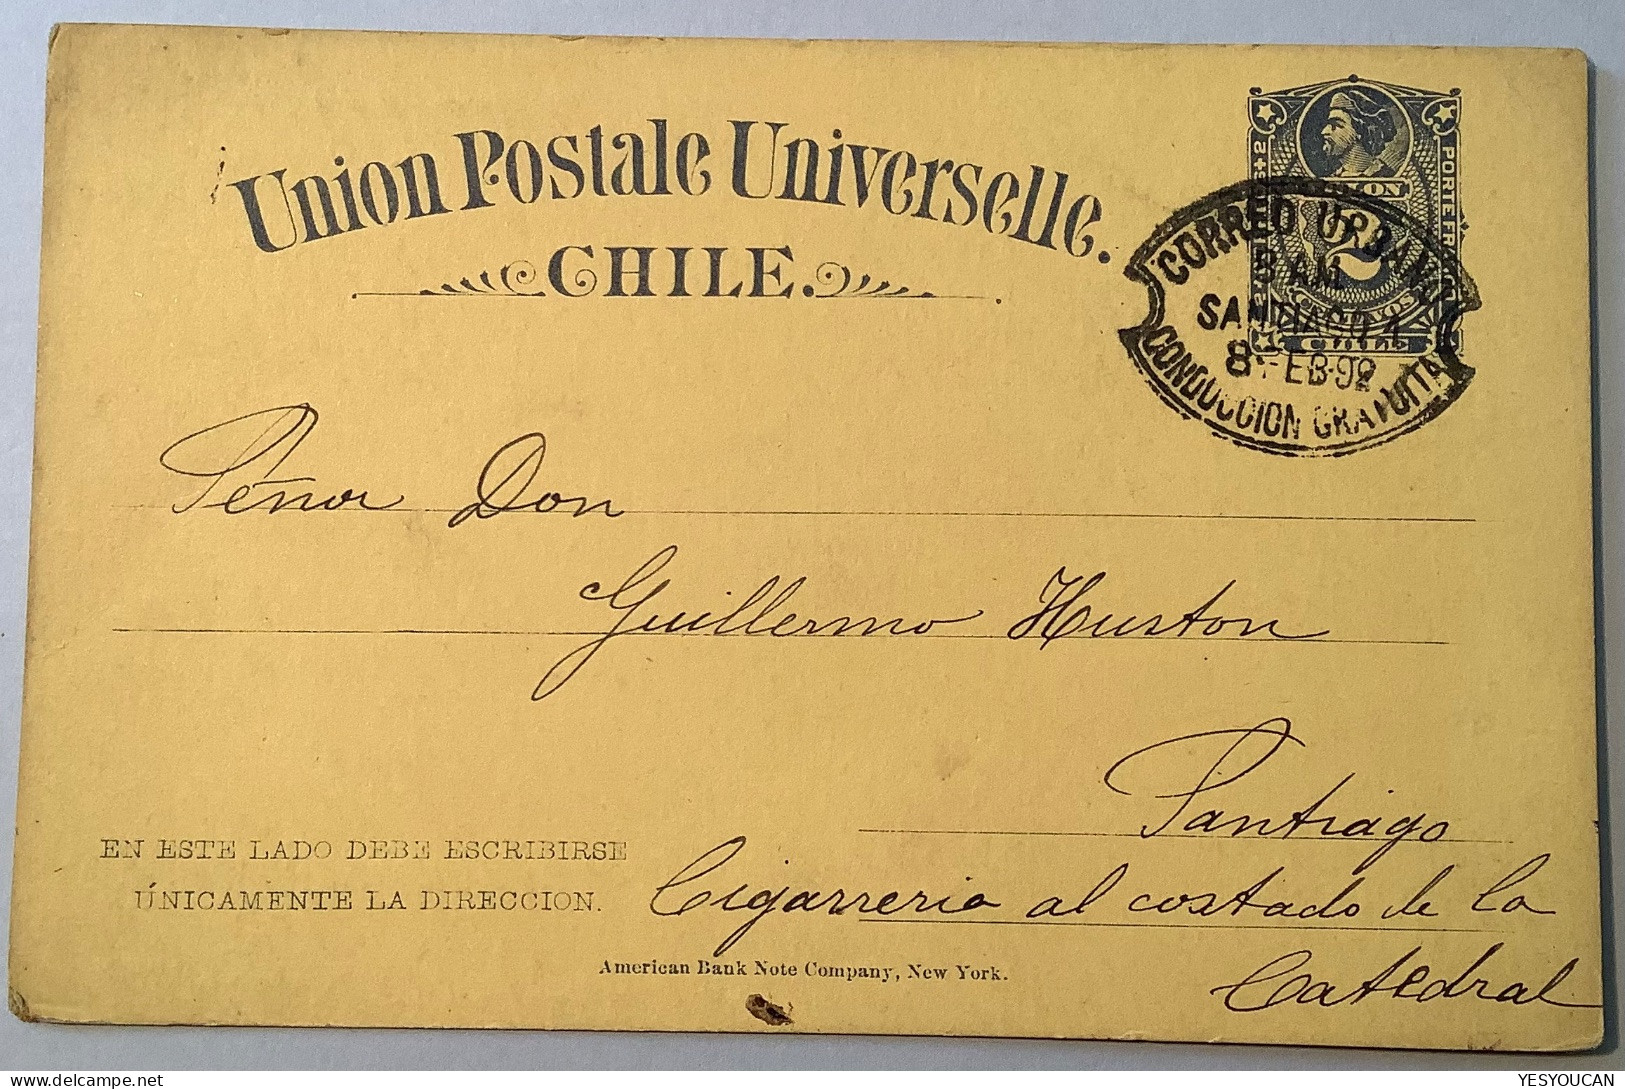 Union Postale Universelle.
CHILE.
COLON
2
CENTAVOS
CHILE
PORTE FRANCO
CORREO URBANO
8 AM
SANTIAGO 1
8 FEB 92
CONDUCCION GRATUITA
Señor Don
Guillermo Huston
Santiago
EN ESTE LADO DEBE ESCRIBIRSE
ÚNICAMENTE LA DIRECCION.
Cigarreria al costado de la
Catedral
American Bank Note Company, New York.
YESYOUCAN